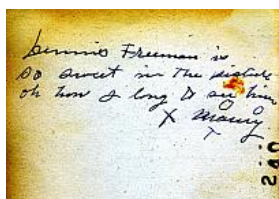 Dennis Freeman is
so sweet in the picture
oh how I long to see him
X Nancy